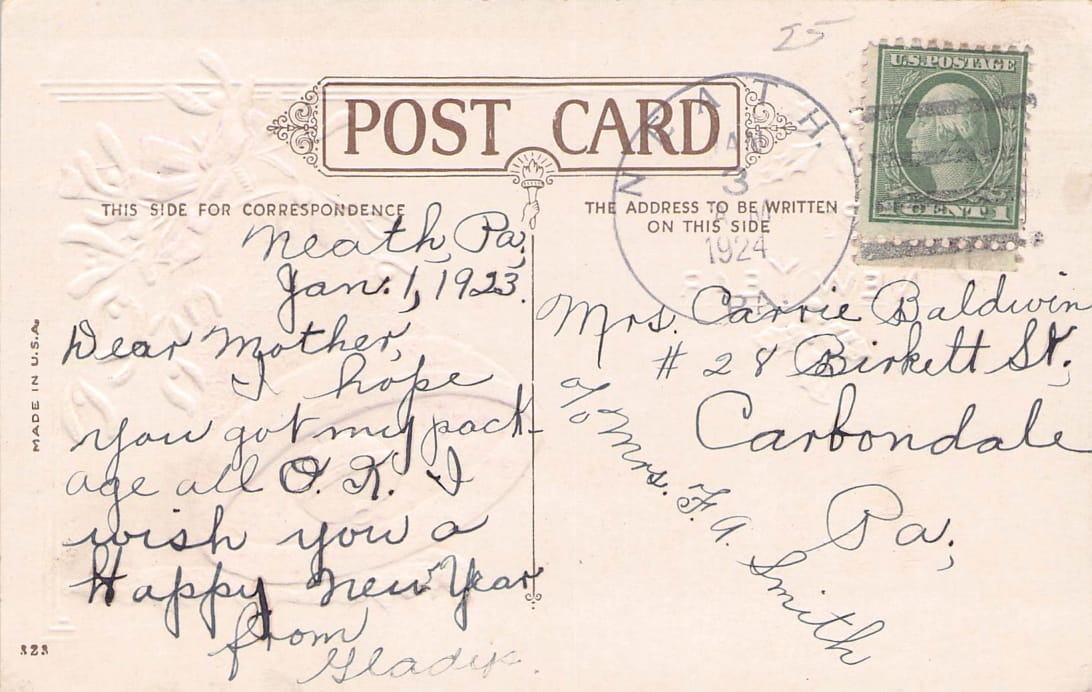 25
U.S. POSTAGE
1 CENT 1
POST CARD
NEATH.
JAN
3
A M
1924
PA.
THIS SIDE FOR CORRESPONDENCE
THE ADDRESS TO BE WRITTEN
ON THIS SIDE
Neath, Pa,
Jan. 1, 1923.
Dear Mother,
I hope
you got my pack-
age all O. K. I
wish you a
Happy New Year
from
Gladys.
Mrs. Carrie Baldwin
# 28 Birkett St.,
Carbondale
Pa.,
c/o Mrs. F. A. Smith
MADE IN U.S.A.
323